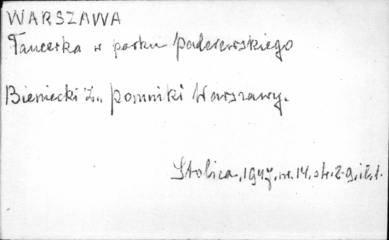 WARSZAWA
Tancerka w parku Paderewskiego
Bieniecki Z., Pomniki Warszawy.
Stolica, 1947, nr. 14, str. 8-9, il. 1.